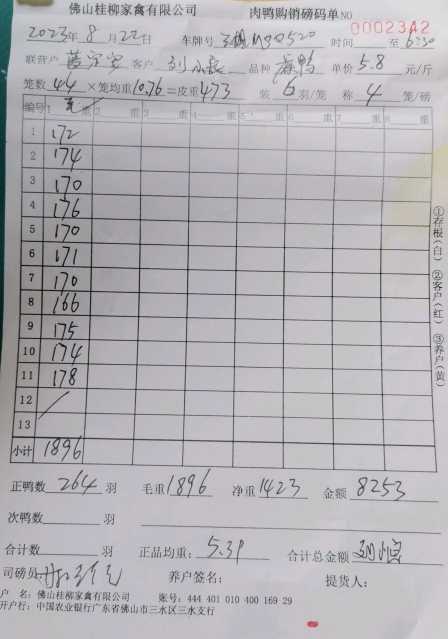 佛山桂柳家禽有限公司 肉鸭购销磅码单 NO 0002342
2023年8月22日 车牌号 时间 至 6:30
联营户 客户 品种 单价5.8元/斤
笼数44×笼均重10.76=皮重473 装6羽/笼 称4笼/磅
编号 1 重 2 重 3 重 4 重 5 重 6 重 7 重 8 重
1 172
2 174
3 170
4 176
5 170
6 171
7 170
8 166
9 175
10 174
11 178
12
13
小计 1896
①存根(白) ②客户(红) ③养户(黄)
正鸭数264羽 毛重1896 净重1423 金额8253
次鸭数 羽
合计数 羽 正品均重:5.39 合计总金额
司磅员 养户签名: 提货人:
户 名:佛山桂柳家禽有限公司 账号:444 401 010 400 169 29
开户行:中国农业银行广东省佛山市三水区三水支行